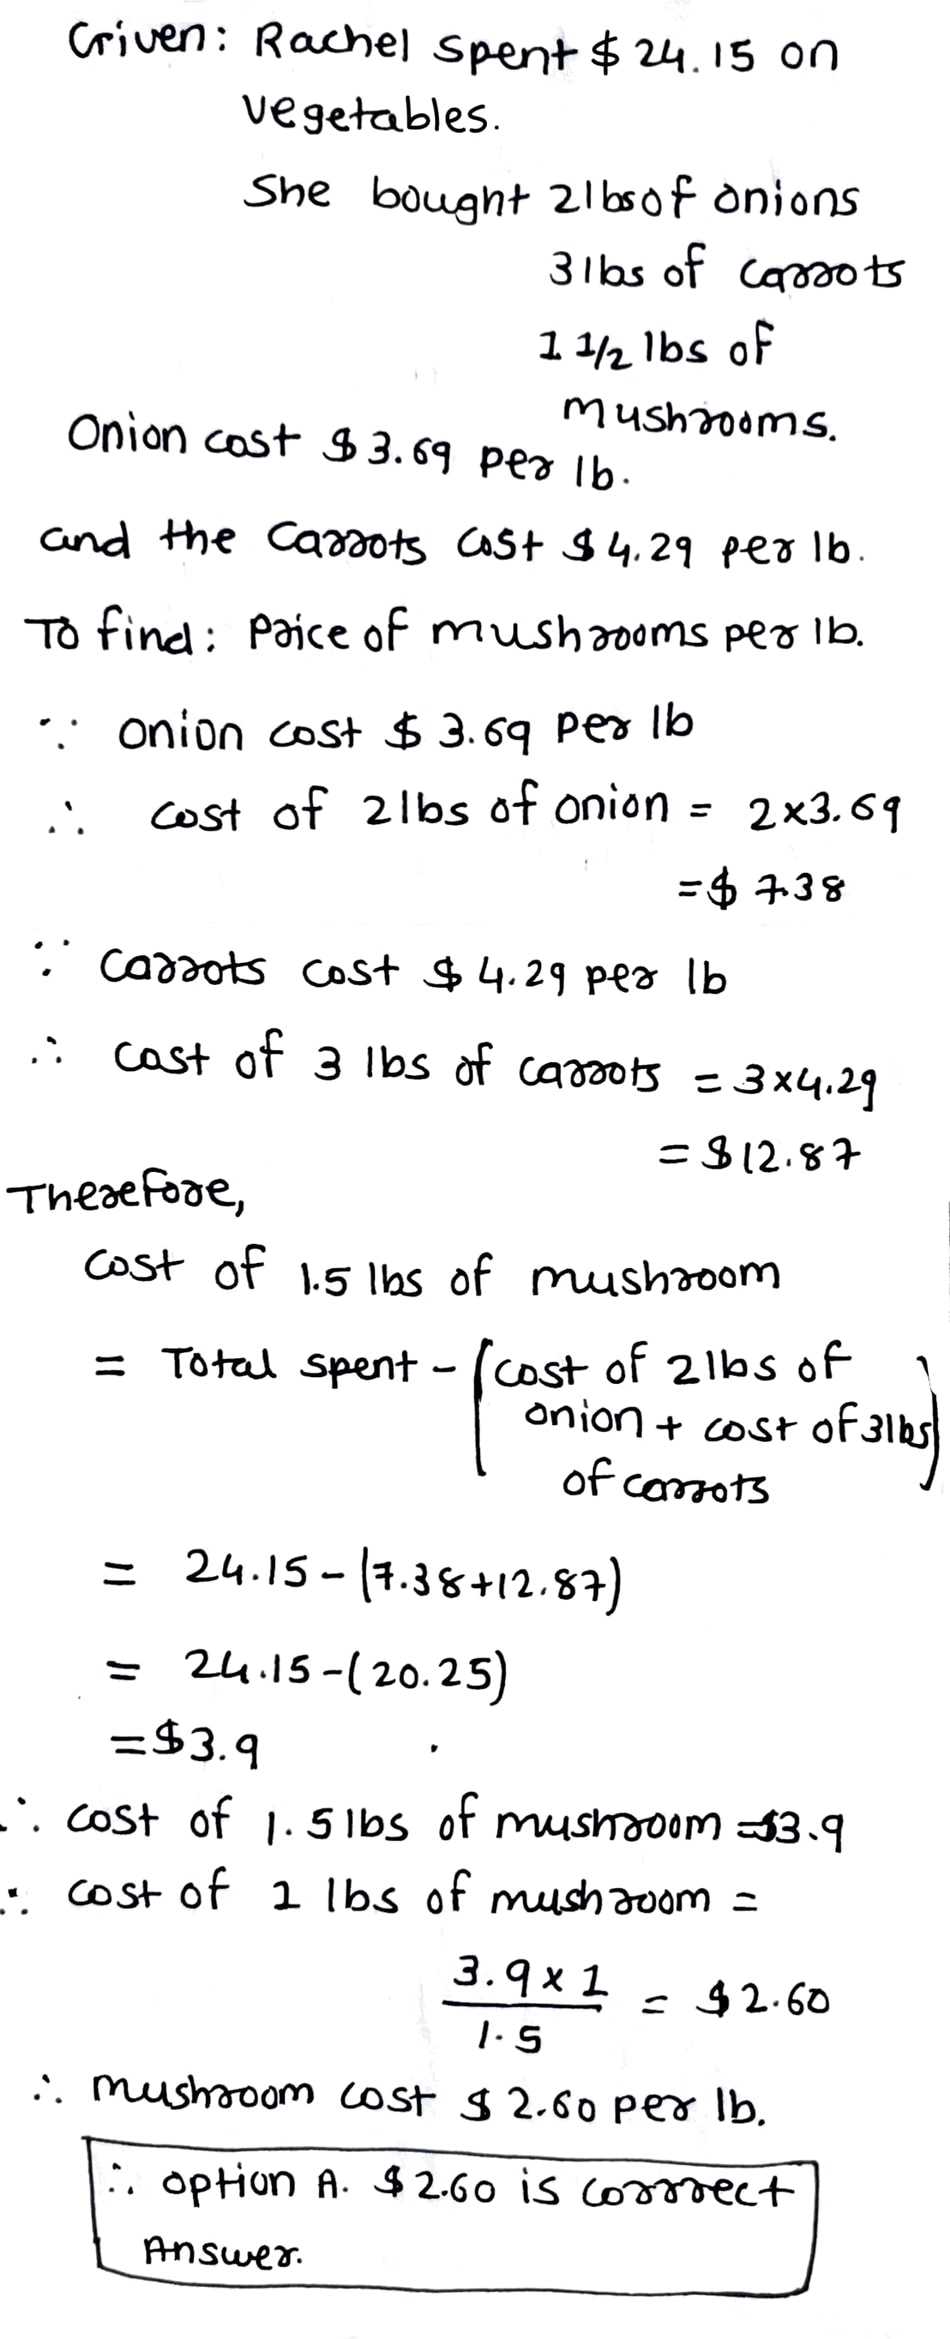 Given: Rachel spent $ 24.15 on
vegetables.
She bought 2lbs of onions
3lbs of carrots
1 1/2 lbs of
mushrooms.
Onion cost $3.69 per lb.
and the carrots cost $4.29 per lb.
To find: Price of mushrooms per lb.
∵ onion cost $ 3.69 per lb
∴ cost of 2lbs of onion = 2×3.69
=$ 7.38
∵ carrots cost $4.29 per lb
∴ cost of 3 lbs of carrots = 3×4.29
= $12.87
Therefore,
cost of 1.5 lbs of mushroom
= Total spent - (cost of 2lbs of
onion + cost of 3lbs
of carrots)
= 24.15-(7.38+12.87)
= 24.15-(20.25)
=$3.9
∴ cost of 1.5lbs of mushroom =$3.9
∴ cost of 1 lbs of mushroom =
3.9×1/1.5 = $2.60
∴ mushroom cost $ 2.60 per lb.
∴ option A. $2.60 is correct
Answer.